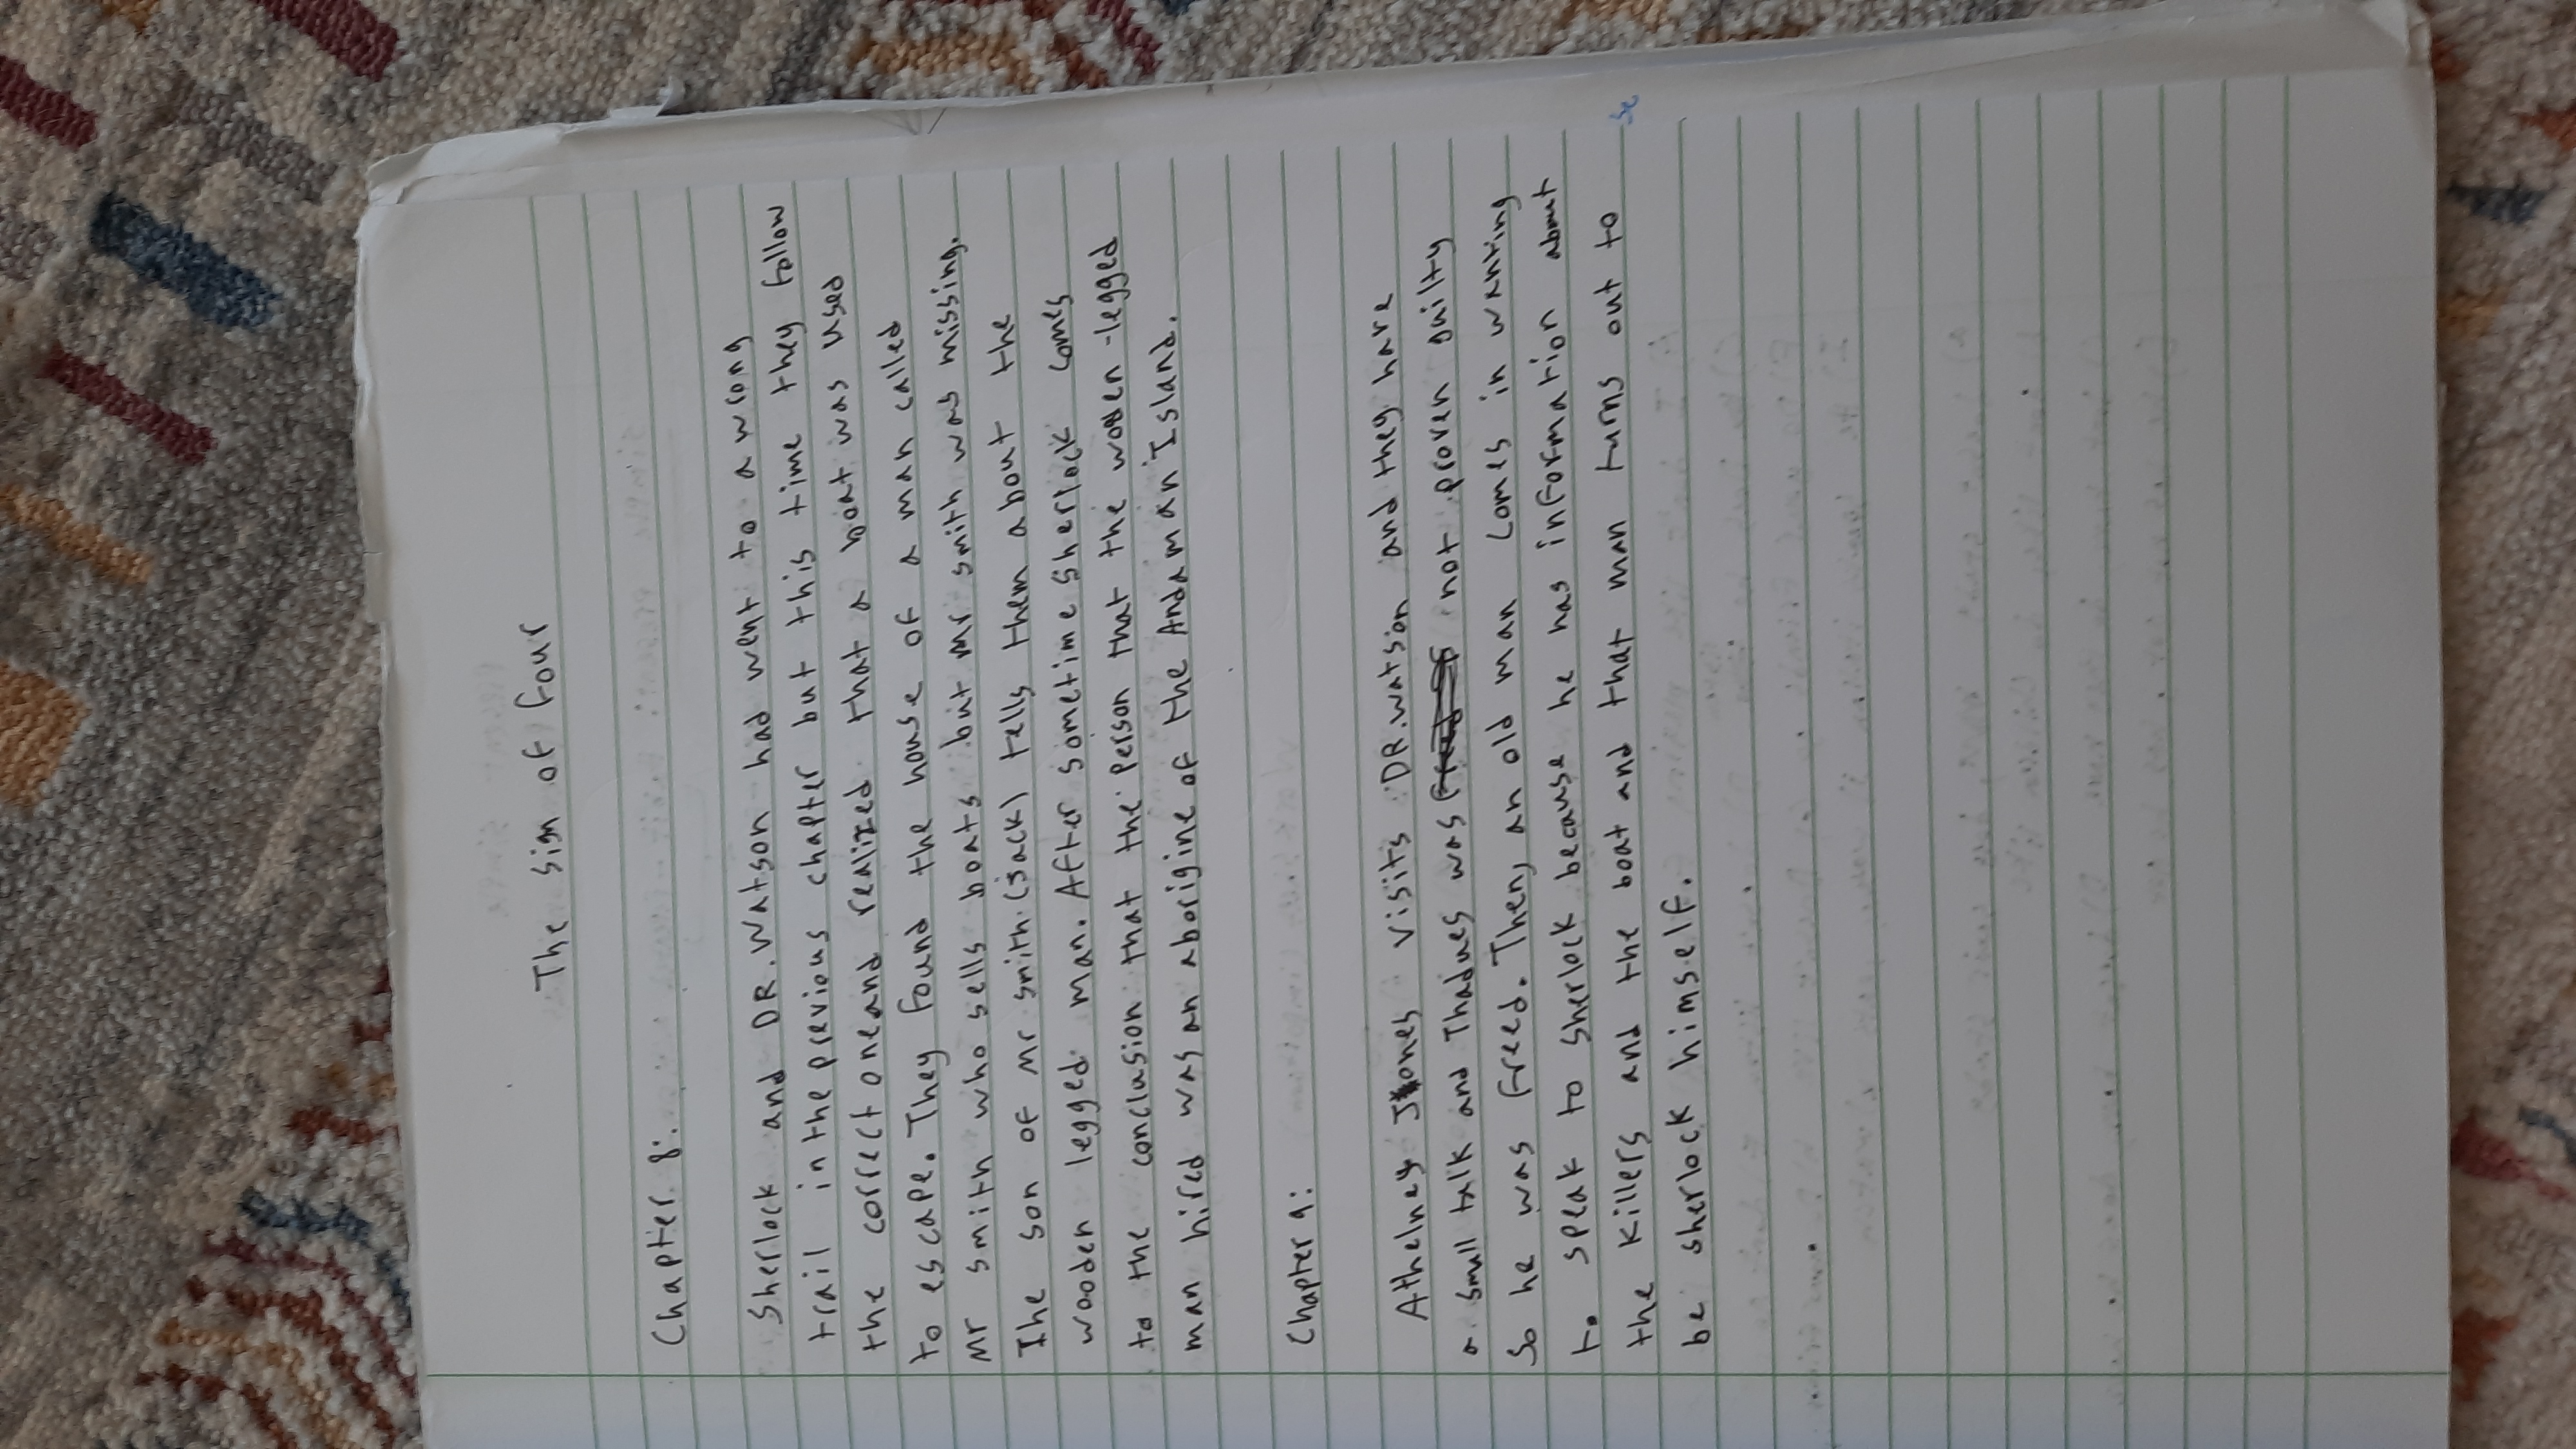 The sign of four
Chapter 8:
Sherlock and DR. Watson had went to a wrong
trail in the previous chapter but this time they follow
the correct one and realized that a boat was used
to escape. They found the house of a man called
Mr smith who sells boats but Mr smith was missing.
The son of Mr smith (Jack) tells them about the
wooden legged man. After sometime Sherlock comes
to the conclusion that the person that the wooden-legged
man hired was an aborigine of the Andaman Island.
Chapter 9:
Athelney Jones visits DR. watson and they have
a small talk and Thadues was not proven guilty
so he was freed. Then, an old man comes in wanting
to speak to Sherlock because he has information about
the killers and the boat and that man turns out to
be sherlock himself.